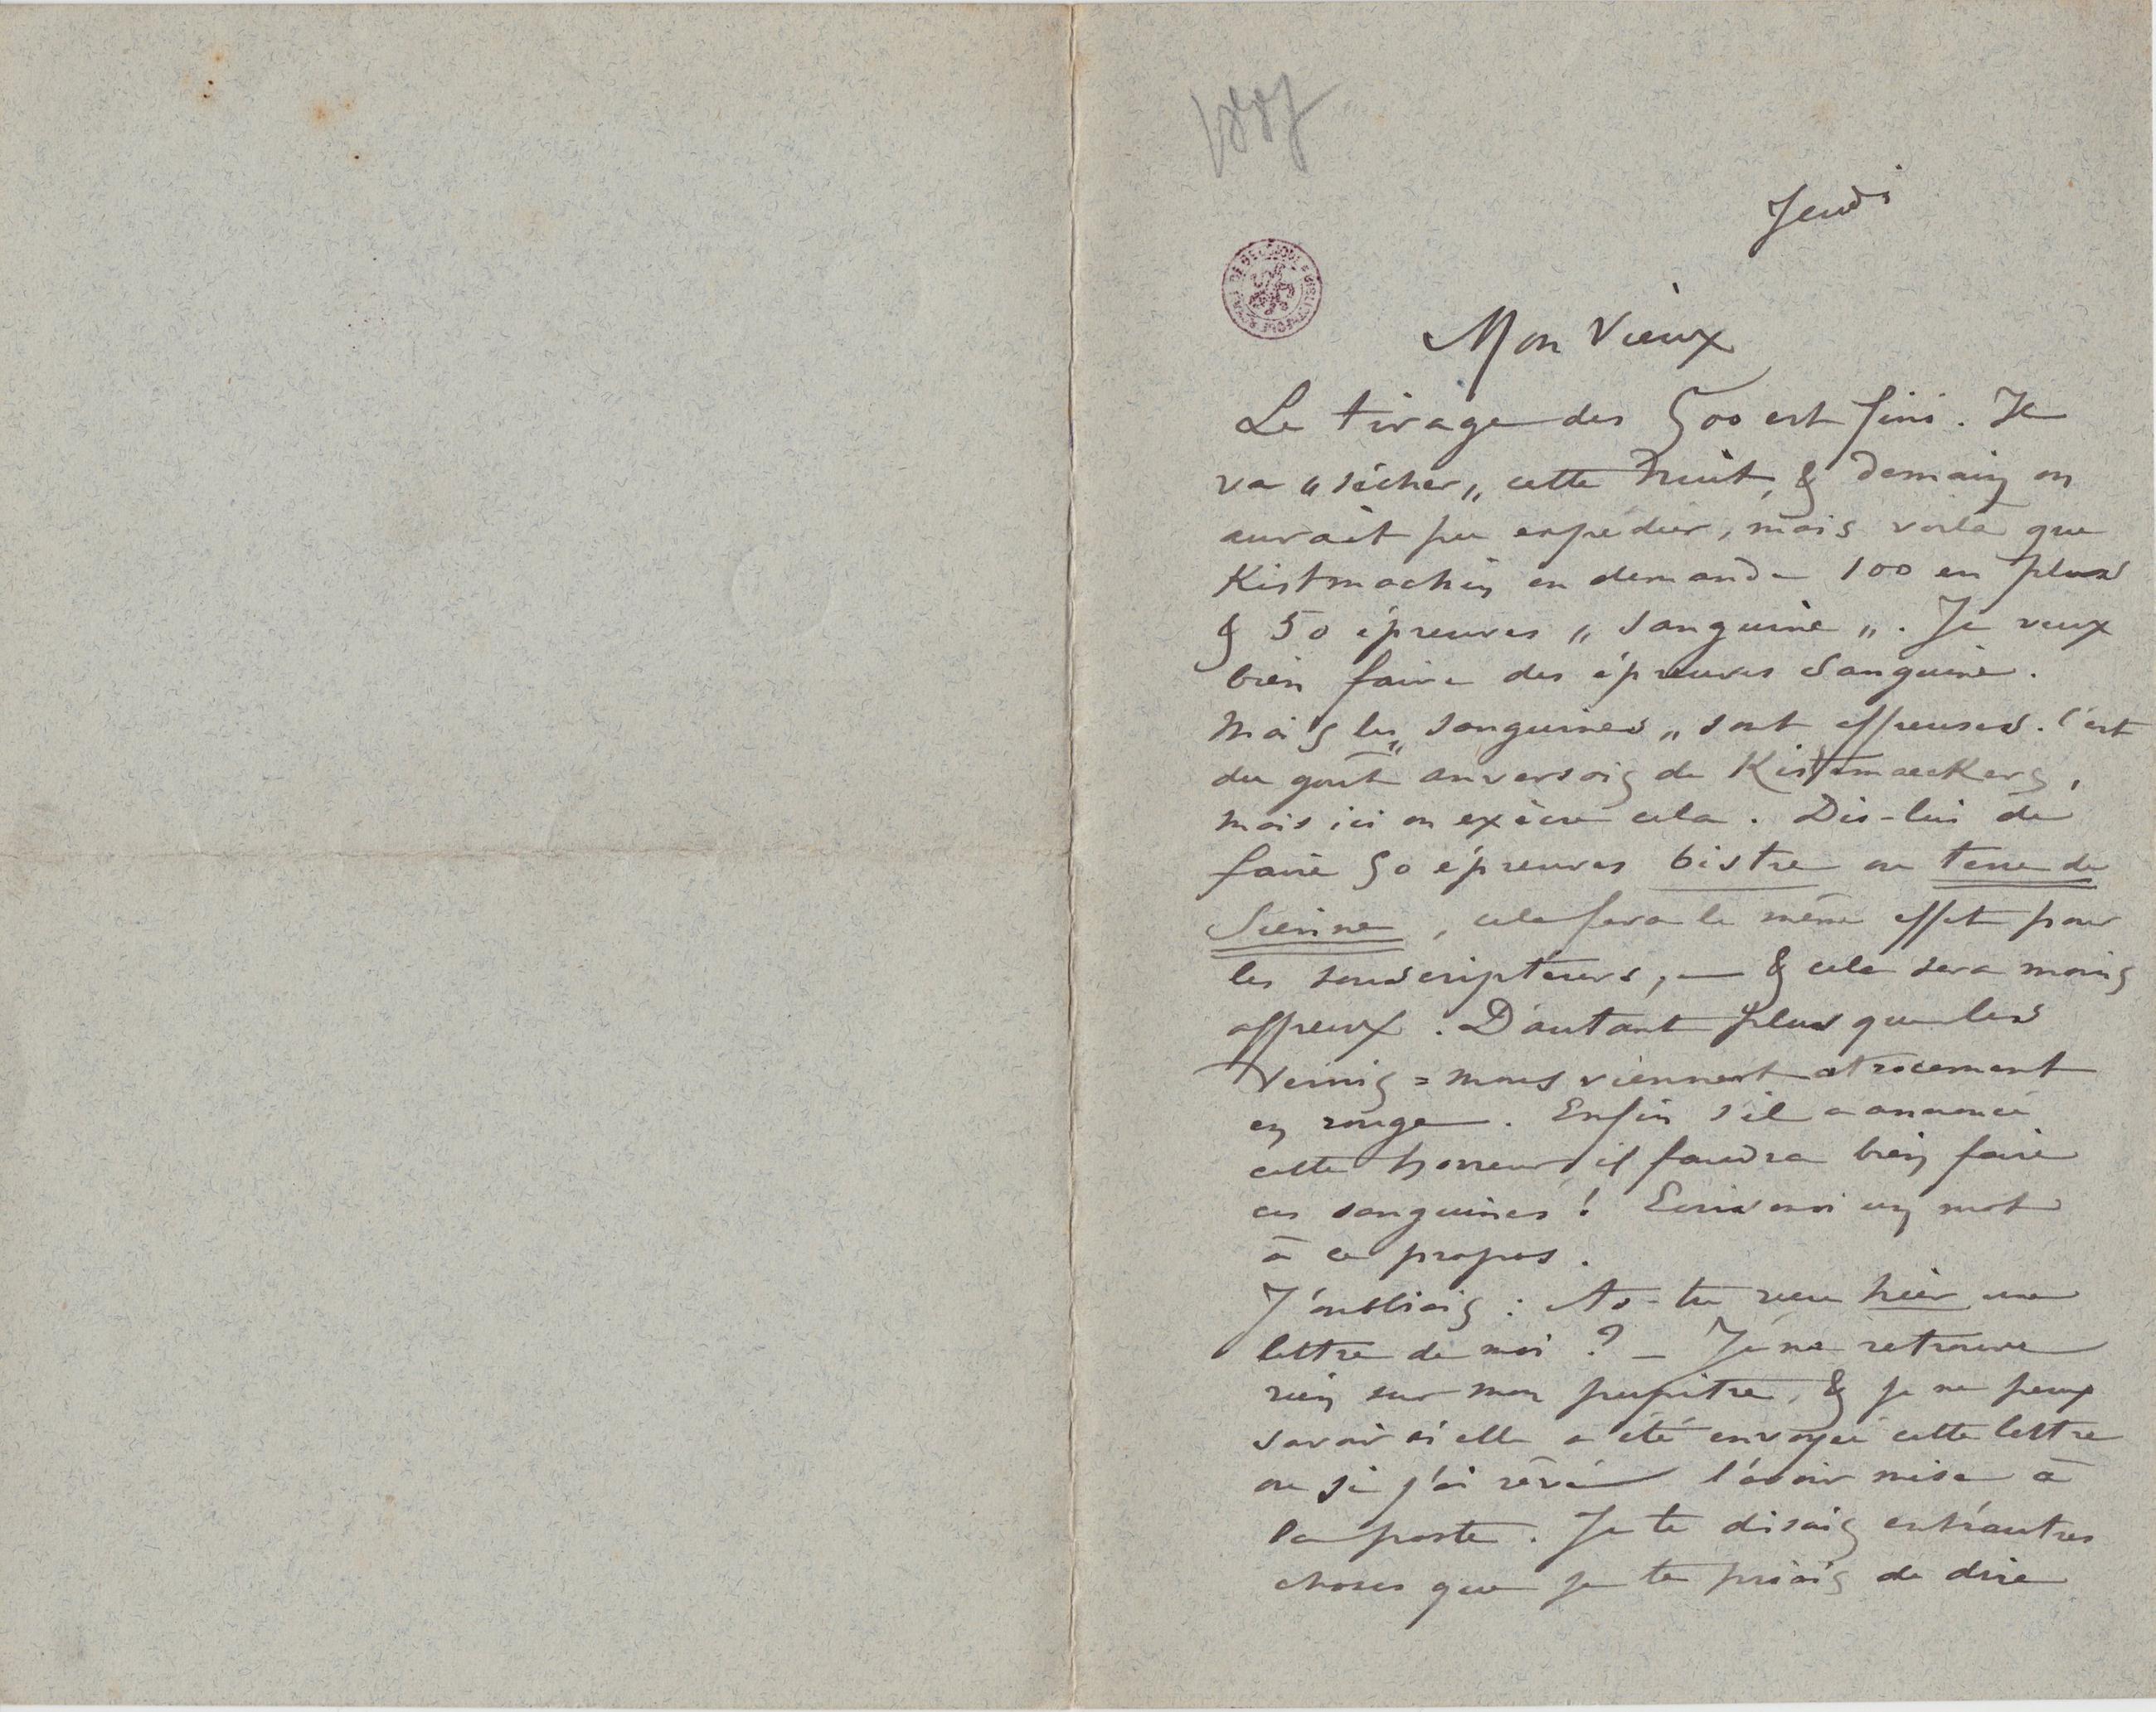 1887
Jeudi
Mon Vieux
Le tirage des 500 est fini. Il
va "sécher" cette nuit, & demain on
aurait pu expédier, mais voilà que
Kistmachin en demande 100 en plus
& 50 épreuves "Sanguine". Je veux
bien faire des épreuves Sanguine.
Mais les "sanguines" sont affreuses. C'est
du goût anversois de Kistemaeckers,
mais ici on exècre cela. Dis-lui de
faire 50 épreuves bistre ou terre de
Sienne, cela fera le même effet pour
les souscripteurs, — & cela sera moins
affreux. D'autant plus que les
Vernis=mous viennent atrocement
en rouge. Enfin s'il a annoncé
cette horreur, il faudra bien faire
ces sanguines! Ecris moi un mot
à ce propos.
J'oubliais: As-tu reçu hier une
lettre de moi? — Je ne retrouve
rien sur mon pupitre, & je ne peux
savoir si elle a été envoyée cette lettre
ou si j'ai rêvé l'avoir mise à
la poste. Je te disais entr'autres
choses que je te priais de dire